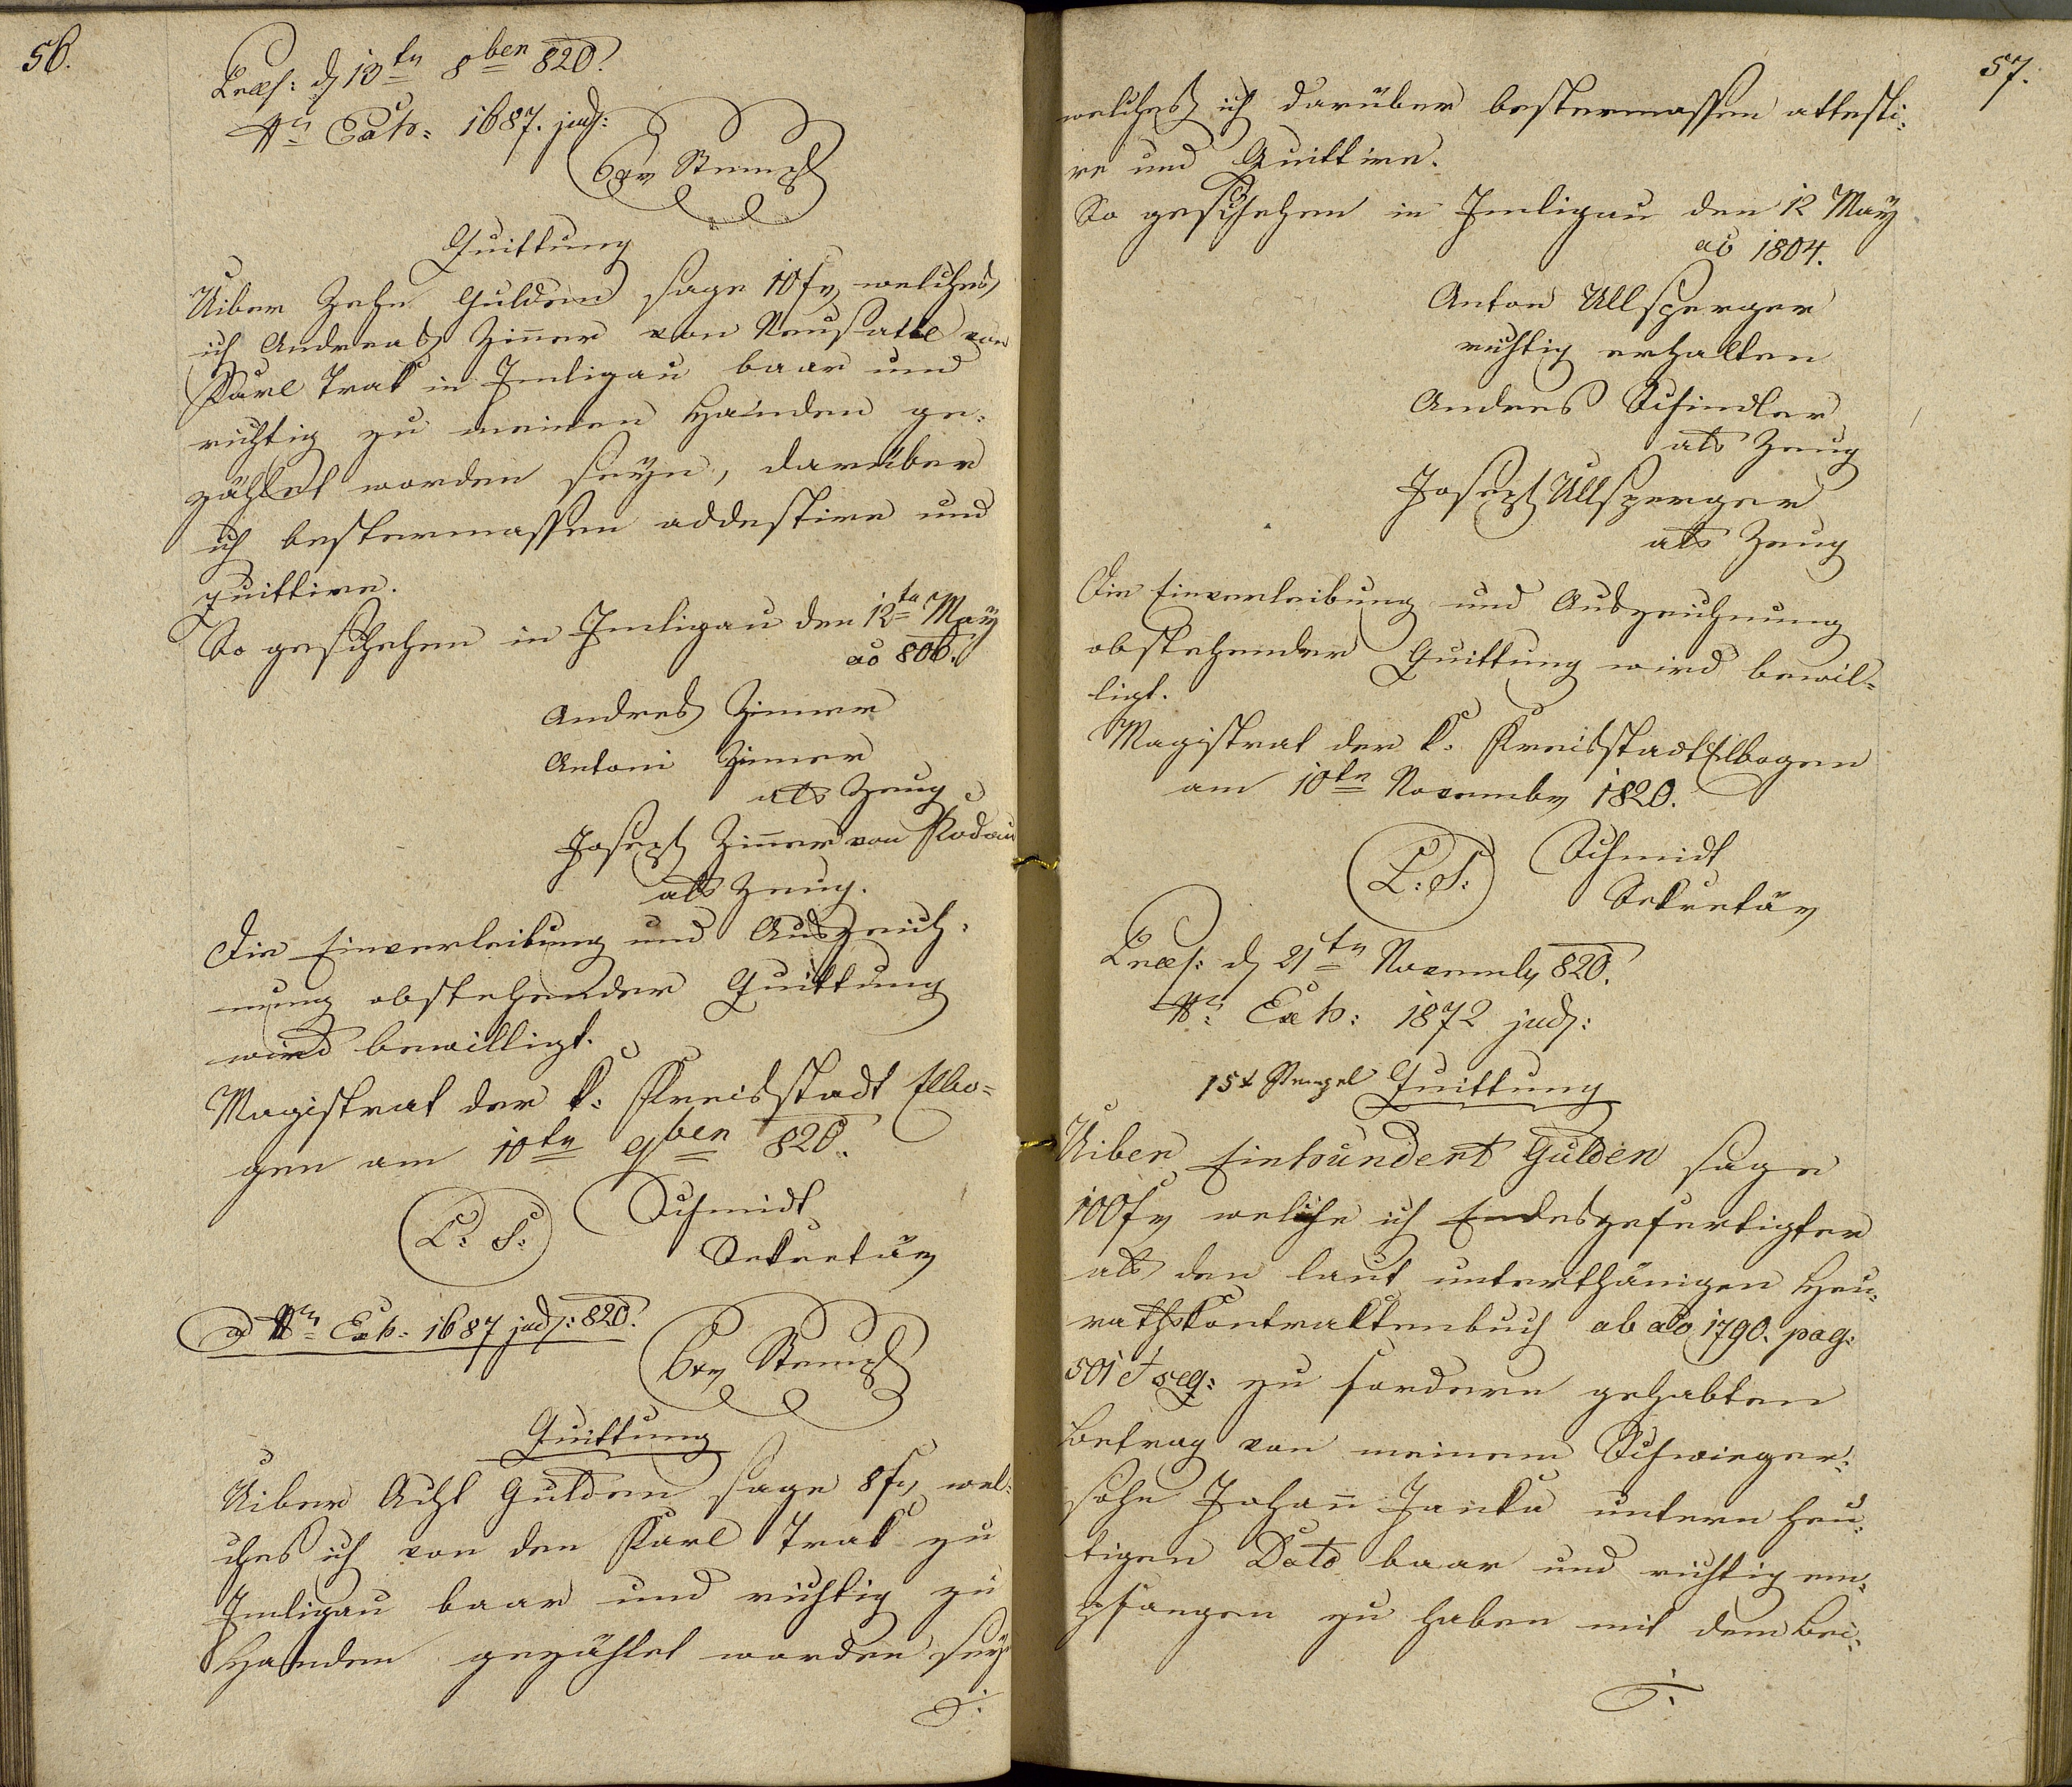 56.
Præs: d 13ten 8ben 820.
Nr. Exh: 1687. jud:
6xr Stempl
Quittung
Uiber Zehn Gulden sage 10 fr, welches
ich Andreas Zinner von Neusattl von
Karl Trak in Imligau baar und
richtig zu meinen Handen ge-
zählet worden seyn, darüber
ich bestermassen addestire und
quittire.
So geschehen in Imligau den 12ten May
ao 806.
Andres Zinner
Antoni Zinner
als Zeug
Joseph Zinner von Kodau
als Zeug.
Die Einverleibung und Auszeich-
nung obstehender Quittung
wird bewilligt.
Magistrat der k: Kreisstadt Elbo-
gen am 10ten 9ben 820.
L: S:
Schmidt
Sekretär
ad Nr. Exh: 1687 jud: 820.
6xr Stempl
Quittung
Uiber Acht Gulden sage 8 fr, wel-
ches ich von den Karl Trak zu
Imligau baar und richtig zu
Handen gezählet worden seyn
57.
welches ich darüber bestermassen attesti-
re und Quittire.
So geschehen in Imligau den 12 May
ao 1804.
Anton Ullsperger
richtig erhalten
Andres Schindler
als Zeug
Joseph Ullsperger
als Zeug
Die Einverleibung und Auszeichnung
obstehender Quittung wird bewil-
ligt.
Magistrat der k: Kreisstadt Elbogen
am 10ten Novembr 1820.
L: S:
Schmidt
Sekretär
Præs: d 21ten Novembr 820.
Nr: Exh: 1872 jud:
15x Stempel Quittung
Uiber Einhundert Gulden sage
100 fr welche ich Endesgefertigter
als den laut unterthänigen Heu-
rathskontraktenbuch ab ao 1790. pag:
501 et seq: zu fordern gehabten
Betrag von meinem Schwieger-
sohn Johann Janka untern heu-
tigen Dato baar und richtig em-
pfangen zu haben mit dem Bei-